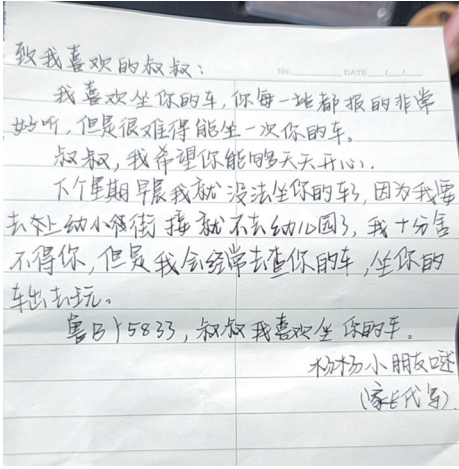 No. DATE / /
致我喜欢的叔叔：
我喜欢坐你的车，你每一站都报的非常
好听，但是很难得能坐一次你的车。
叔叔，我希望你能够天天开心。
下个星期早晨我就没法坐你的车了，因为我要
去上幼小衔接就不去幼儿园了，我十分舍
不得你，但是我会经常去查你的车，坐你的
车出去玩。
鲁BY5833，叔叔我喜欢坐你的车。
杨杨小朋友
（家长代写）